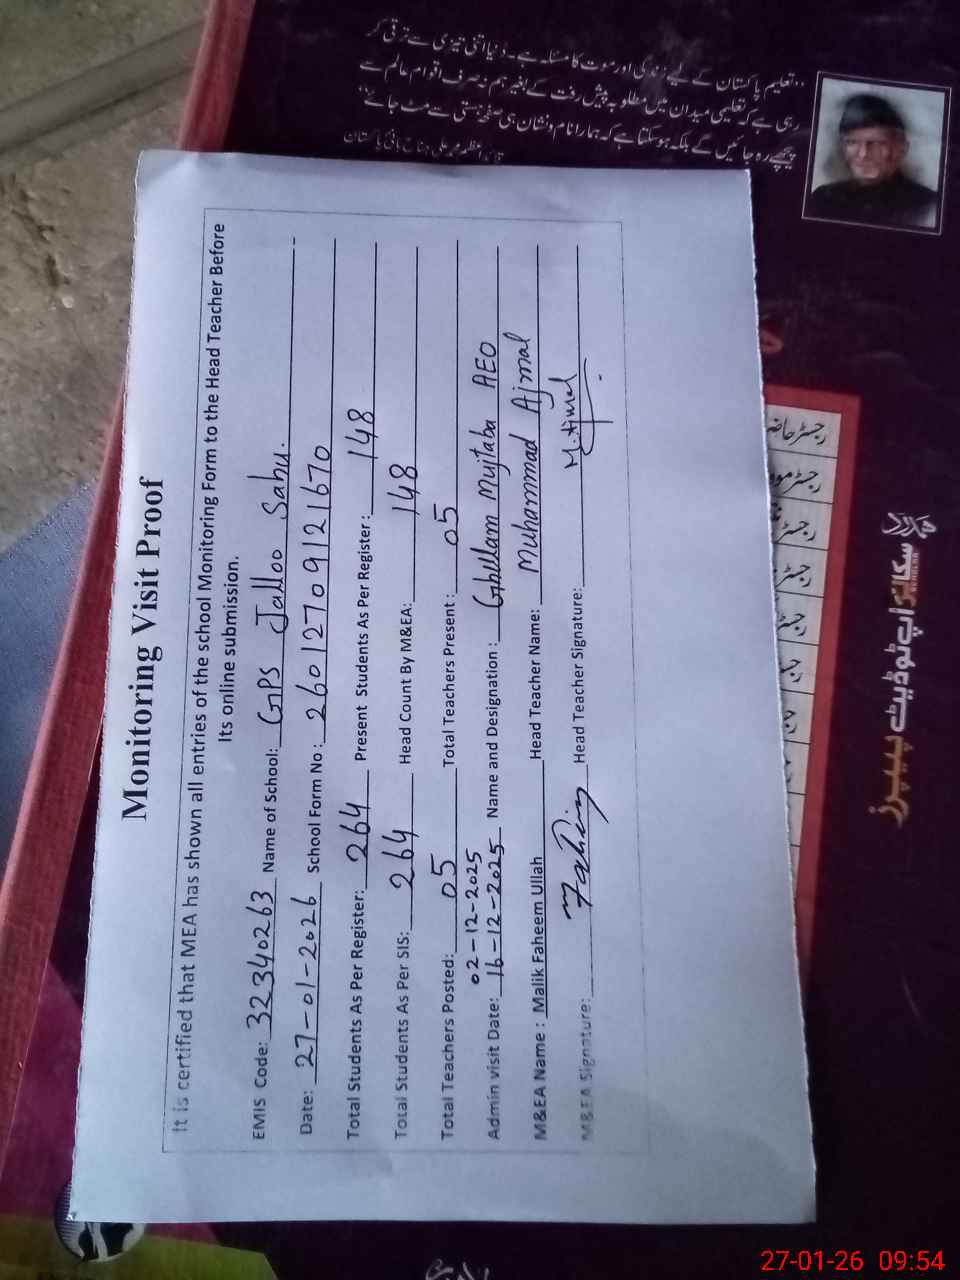 "تعلیم پاکستان کے لیے زندگی اور موت کا مسئلہ ہے۔ دنیا اتنی تیزی سے ترقی کر
رہی ہے کہ تعلیمی میدان میں مطلوبہ پیش رفت کے بغیر ہم نہ صرف اقوام عالم سے
پیچھے رہ جائیں گے بلکہ ہو سکتا ہے کہ ہمارا نام و نشان ہی صفحہ ہستی سے مٹ جائے"
قائد اعظم محمد علی جناح بانی پاکستان
Monitoring Visit Proof
It is certified that MEA has shown all entries of the school Monitoring Form to the Head Teacher Before
Its online submission.
EMIS Code: 32340263 Name of School: GPS Jalloo Sahu.
Date: 27-01-2026 School Form No: 260127091216 70
Total Students As Per Register: 264 Present Students As Per Register: 148
Total Students As Per SIS: 264 Head Count By M&EA: 148
Total Teachers Posted: 05 Total Teachers Present: 05
02-12-2025
Admin visit Date: 16-12-2025 Name and Designation: Ghullam Mujtaba AEO
M&EA Name: Malik Faheem Ullah Head Teacher Name: Muhammad Ajmal
M&EA Signature: Faheem Head Teacher Signature: M. Ajmal
رجسٹر
رجسٹر
رجسٹر
رجسٹر
ہمدرد
سکالرز اپ ٹو ڈیٹ پیپرز
27-01-26 09:54